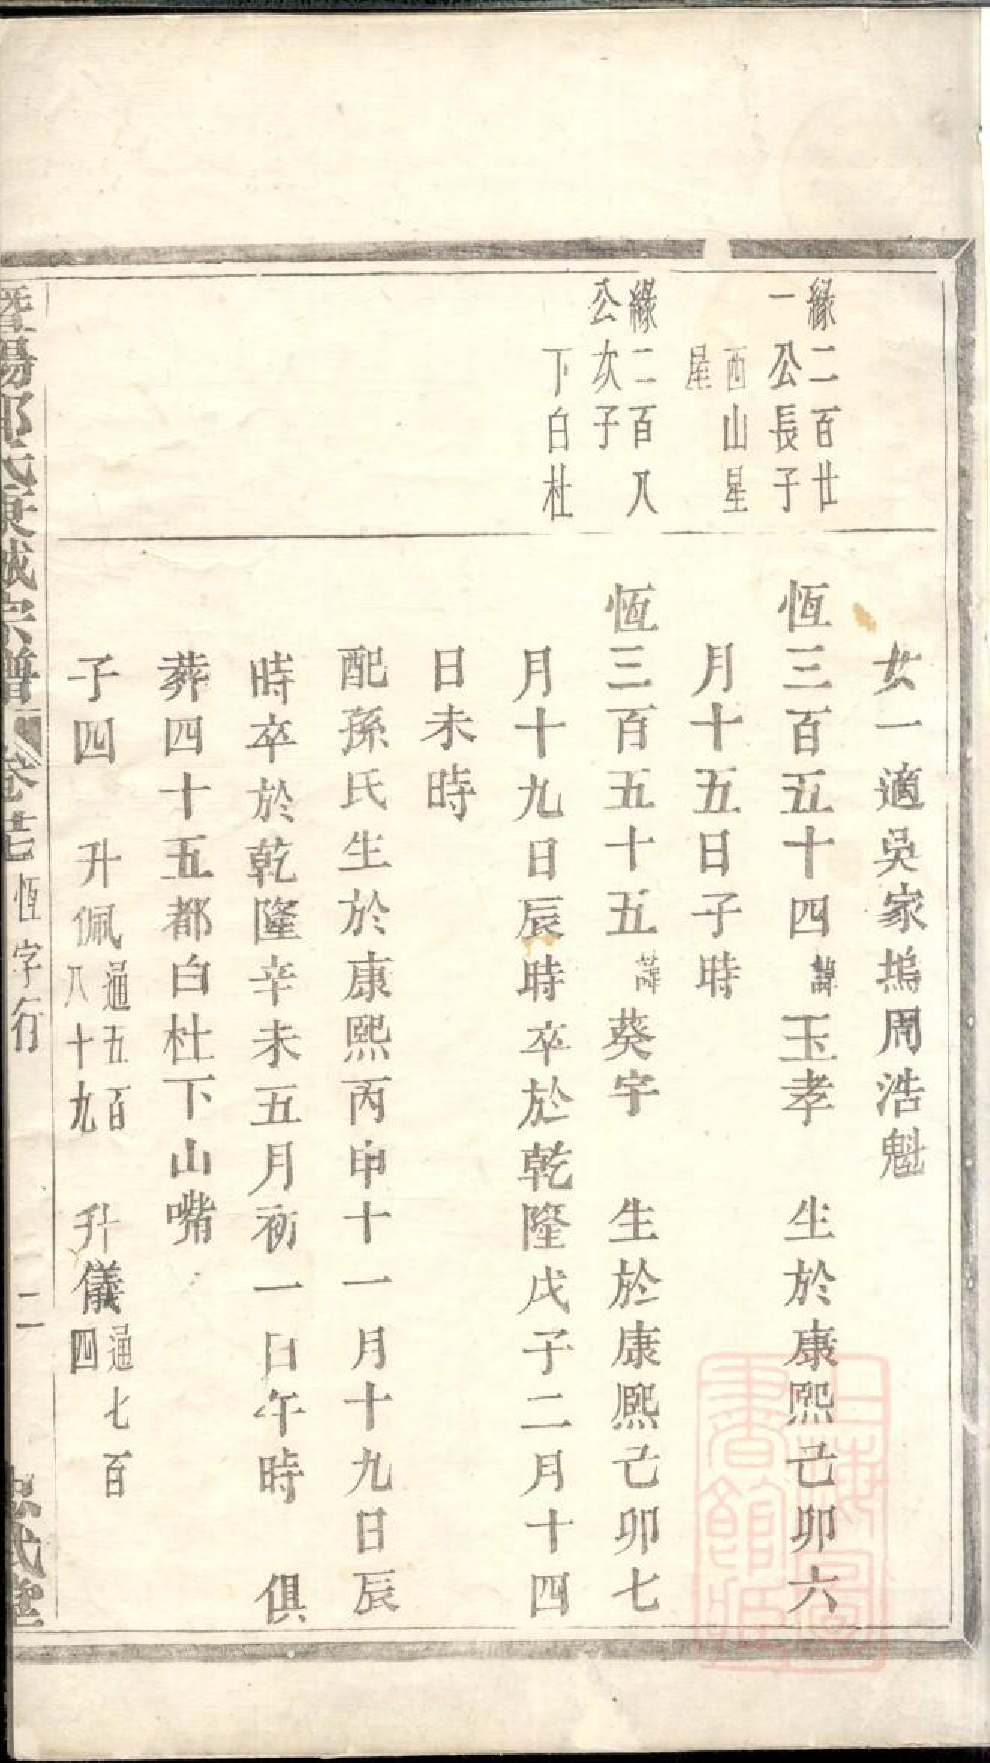 緣二百廿
一公長子
西山星
屋
緣二百八
公次子
下白杜
女一適吳家塢周浩魁
恆三百五十四諱玉孝 生於康熙己卯六
月十五日子時
恆三百五十五諱葵宇 生於康熙己卯七
月十九日辰時卒於乾隆戊子二月十四
日未時
配孫氏生於康熙丙申十一月十九日辰
時卒於乾隆辛未五月初一日午時 俱
葬四十五都白杜下山嘴
子四 升佩通五百八十九 升儀通七百四
暨陽 宗譜 卷廿七 恆字行 二
上海圖書館藏